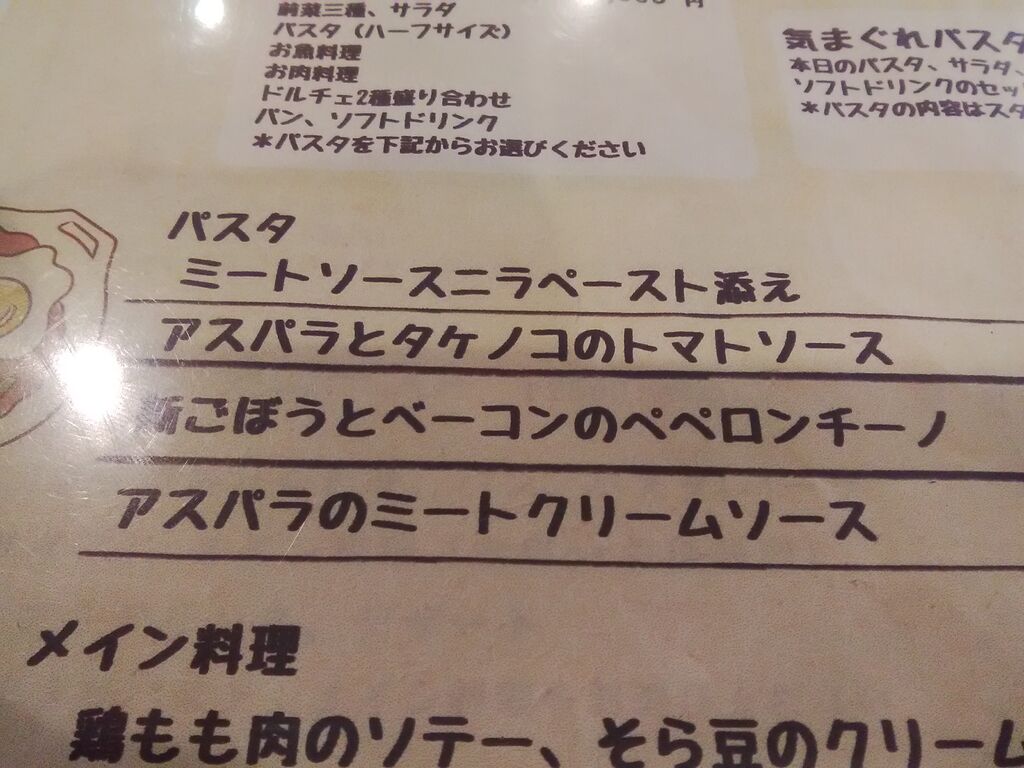 前菜三種、サラダ
パスタ（ハーフサイズ）
お魚料理
お肉料理
ドルチェ2種盛り合わせ
パン、ソフトドリンク
*パスタを下記からお選びください
気まぐれパスタ
*本日のパスタ、サラダ、
ソフトドリンクのセッ
*パスタの内容はスタ
パスタ
ミートソースニラペースト添え
アスパラとタケノコのトマトソース
新ごぼうとベーコンのペペロンチーノ
アスパラのミートクリームソース
メイン料理
鶏もも肉のソテー、そら豆のクリーム